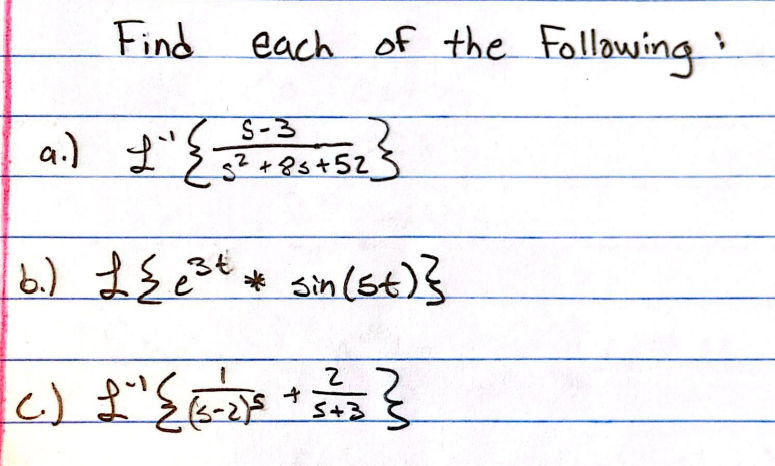 Find each of the Following :
a.) ℒ⁻¹{ (s-3)/(s² + 8s + 52) }
b.) ℒ{ e³ᵗ * sin(5t) }
c.) ℒ⁻¹{ 1/(s-2)⁵ + 2/(s+3) }